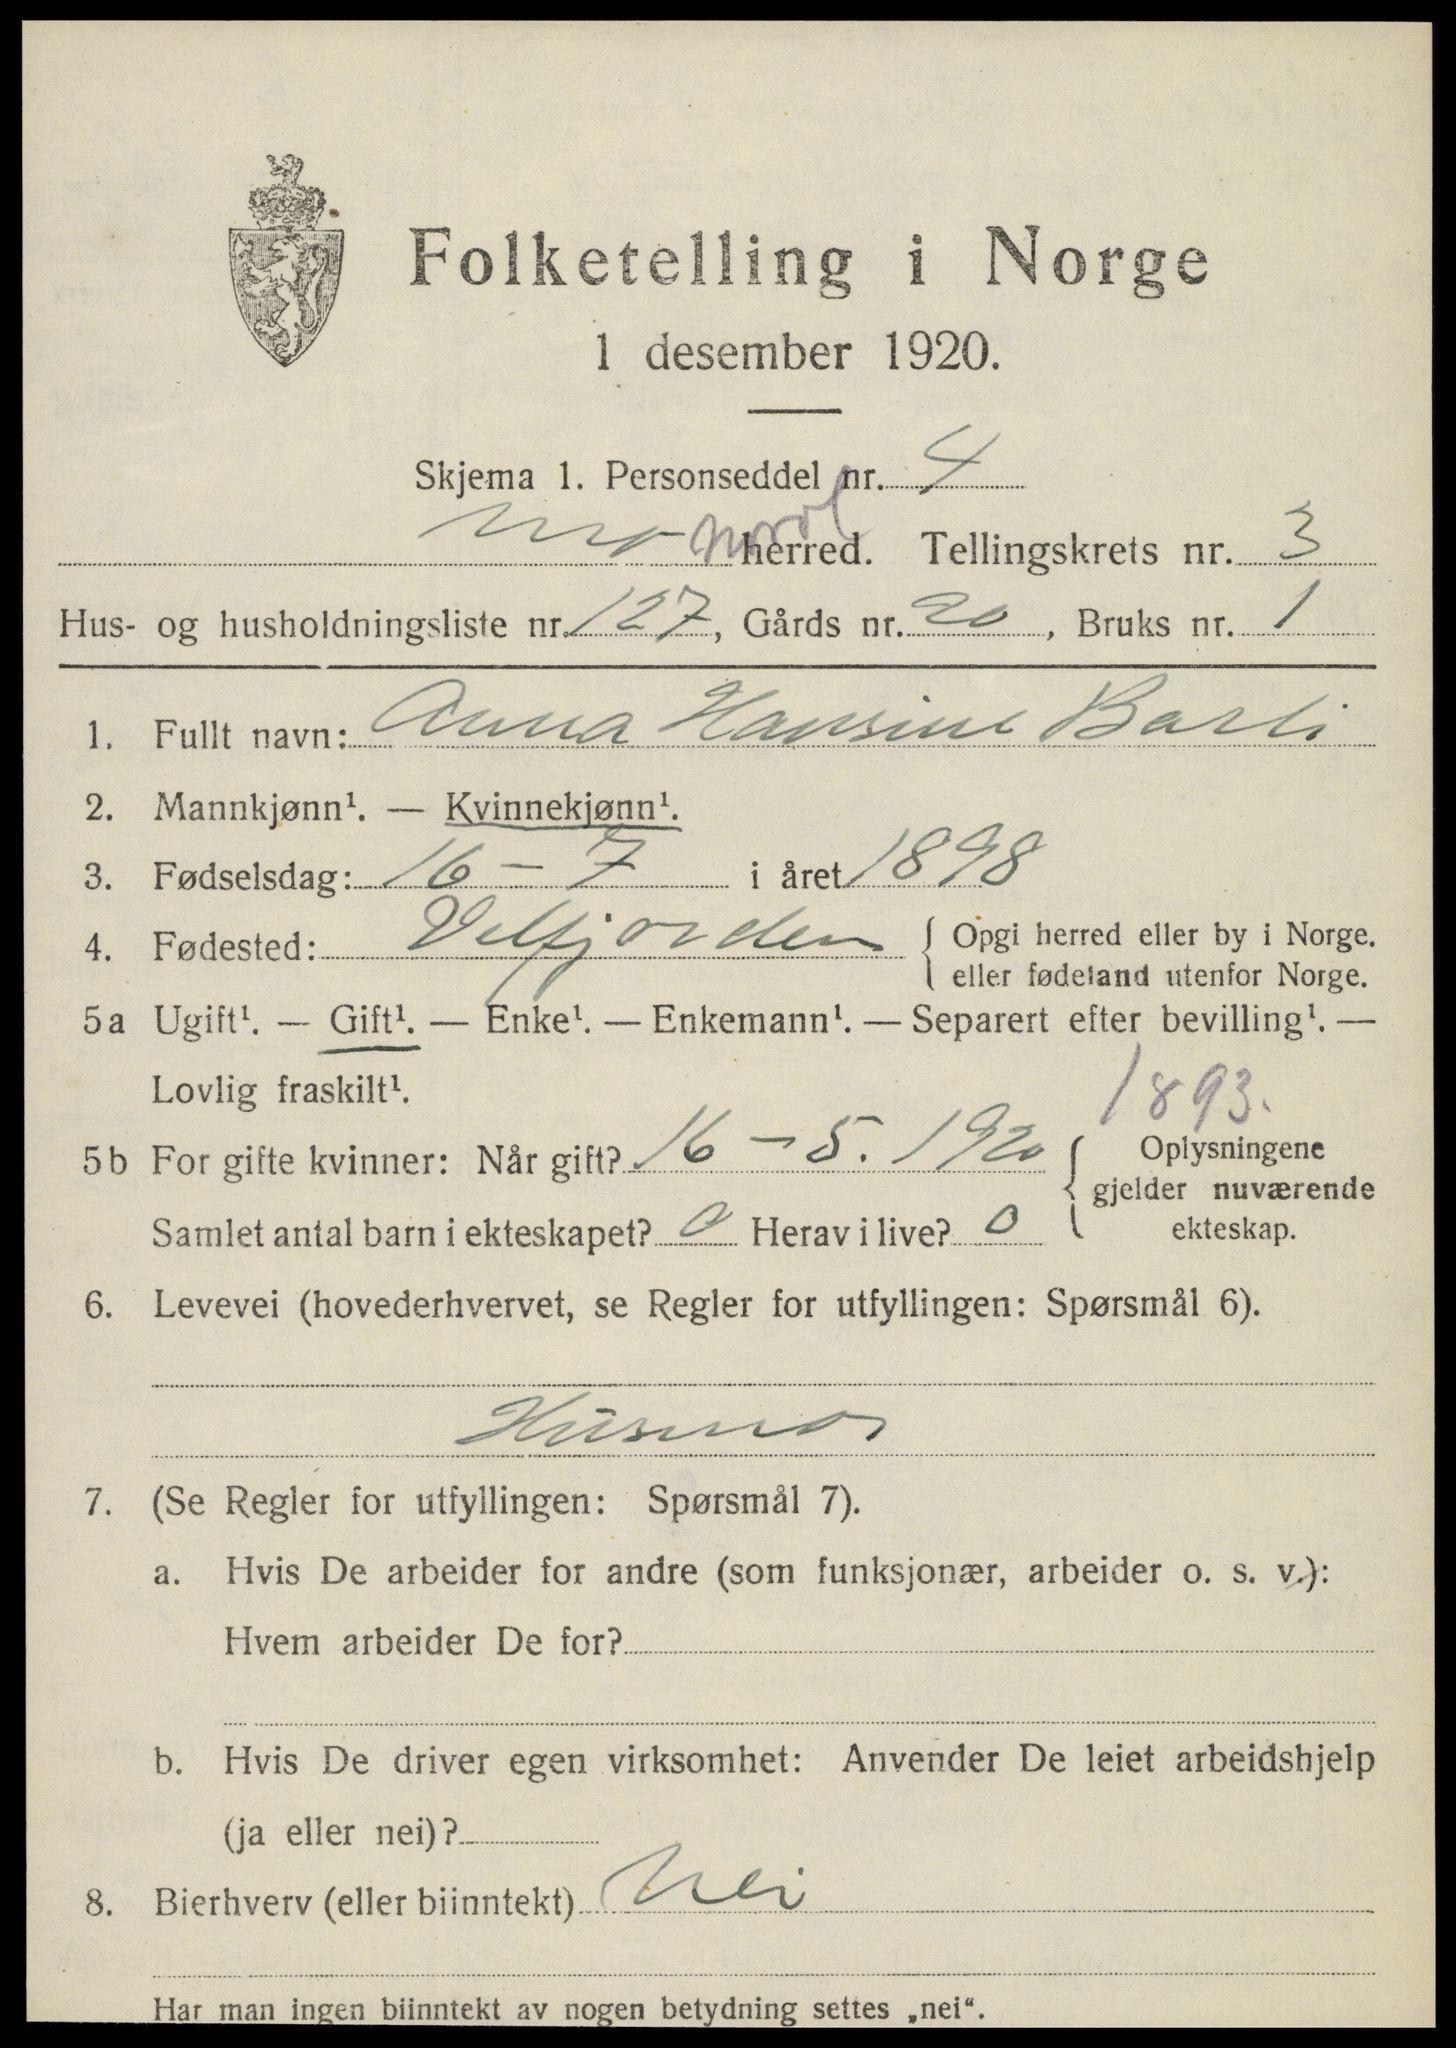 Folketelling i Norge
1 desember 1920.
Skjema 1. Personseddel nr. 4
Mo nord herred. Tellingskrets nr. 3
Hus- og husholdningsliste nr. 127, Gårds nr. 20, Bruks nr. 1
1. Fullt navn: Anna Hansine Barli
2. Mannkjønn¹. — Kvinnekjønn¹.
3. Fødselsdag: 16 - 7 i året 1898
4. Fødested: Velfjorden { Opgi herred eller by i Norge.
eller fødeland utenfor Norge.
5a Ugift¹. — Gift¹. — Enke¹. — Enkemann¹. — Separert efter bevilling¹. —
Lovlig fraskilt¹.
1893.
5b For gifte kvinner: Når gift? 16 - 5. 1920 { Oplysningene
gjelder nuværende
Samlet antal barn i ekteskapet? 0 Herav i live? 0 ekteskap.
6. Levevei (hovederhvervet, se Regler for utfyllingen: Spørsmål 6).
Husmor
7. (Se Regler for utfyllingen: Spørsmål 7).
a. Hvis De arbeider for andre (som funksjonær, arbeider o. s. v.):
Hvem arbeider De for?
b. Hvis De driver egen virksomhet: Anvender De leiet arbeidshjelp
(ja eller nei)?
8. Bierhverv (eller biinntekt) Nei
Har man ingen biinntekt av nogen betydning settes „nei“.